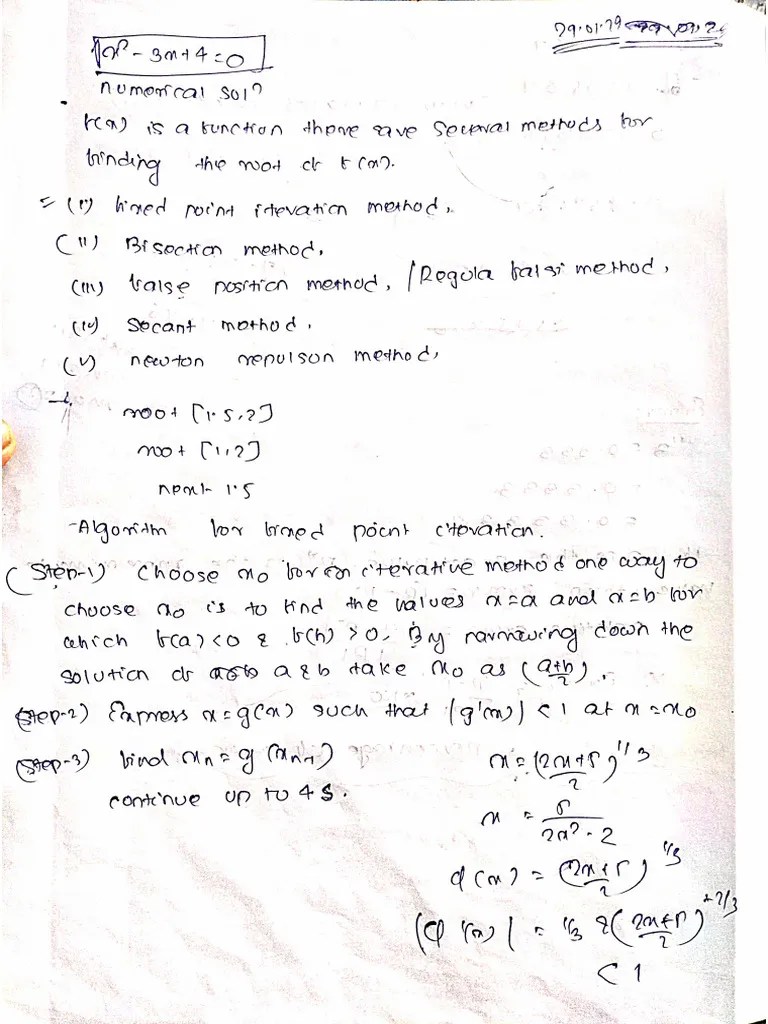 29.01.29
x² - 3x + 4 = 0
numerical solⁿ
f(x) is a function there are several methods for
finding the root of f(x).
= (i) fixed point iteration method,
(ii) Bisection method,
(iii) false position method, / Regula falsi method,
(iv) Secant method,
(v) newton repulson method,
root [1.5, 2]
root [1, 2]
next 1.5
-Algorithm for fixed point iteration.
(Step-1) Choose x0 for an iterative method one way to
choose x0 is to find the values x=a and x=b for
which f(a) < 0 & f(b) > 0. By narrowing down the
solution of a & b take x0 as (a+b/2).
(Step-2) Express x = g(x) such that |g'(x)| < 1 at x = x0
(Step-3) find xn = g(xn-1)
continue up to 4 S.
x = (2x+5/2)^1/3
x = 5/2x²-2
φ(x) = (2x+5/2)^1/3
|φ'(x)| = 1/3 (2x+5/2)^-2/3
< 1